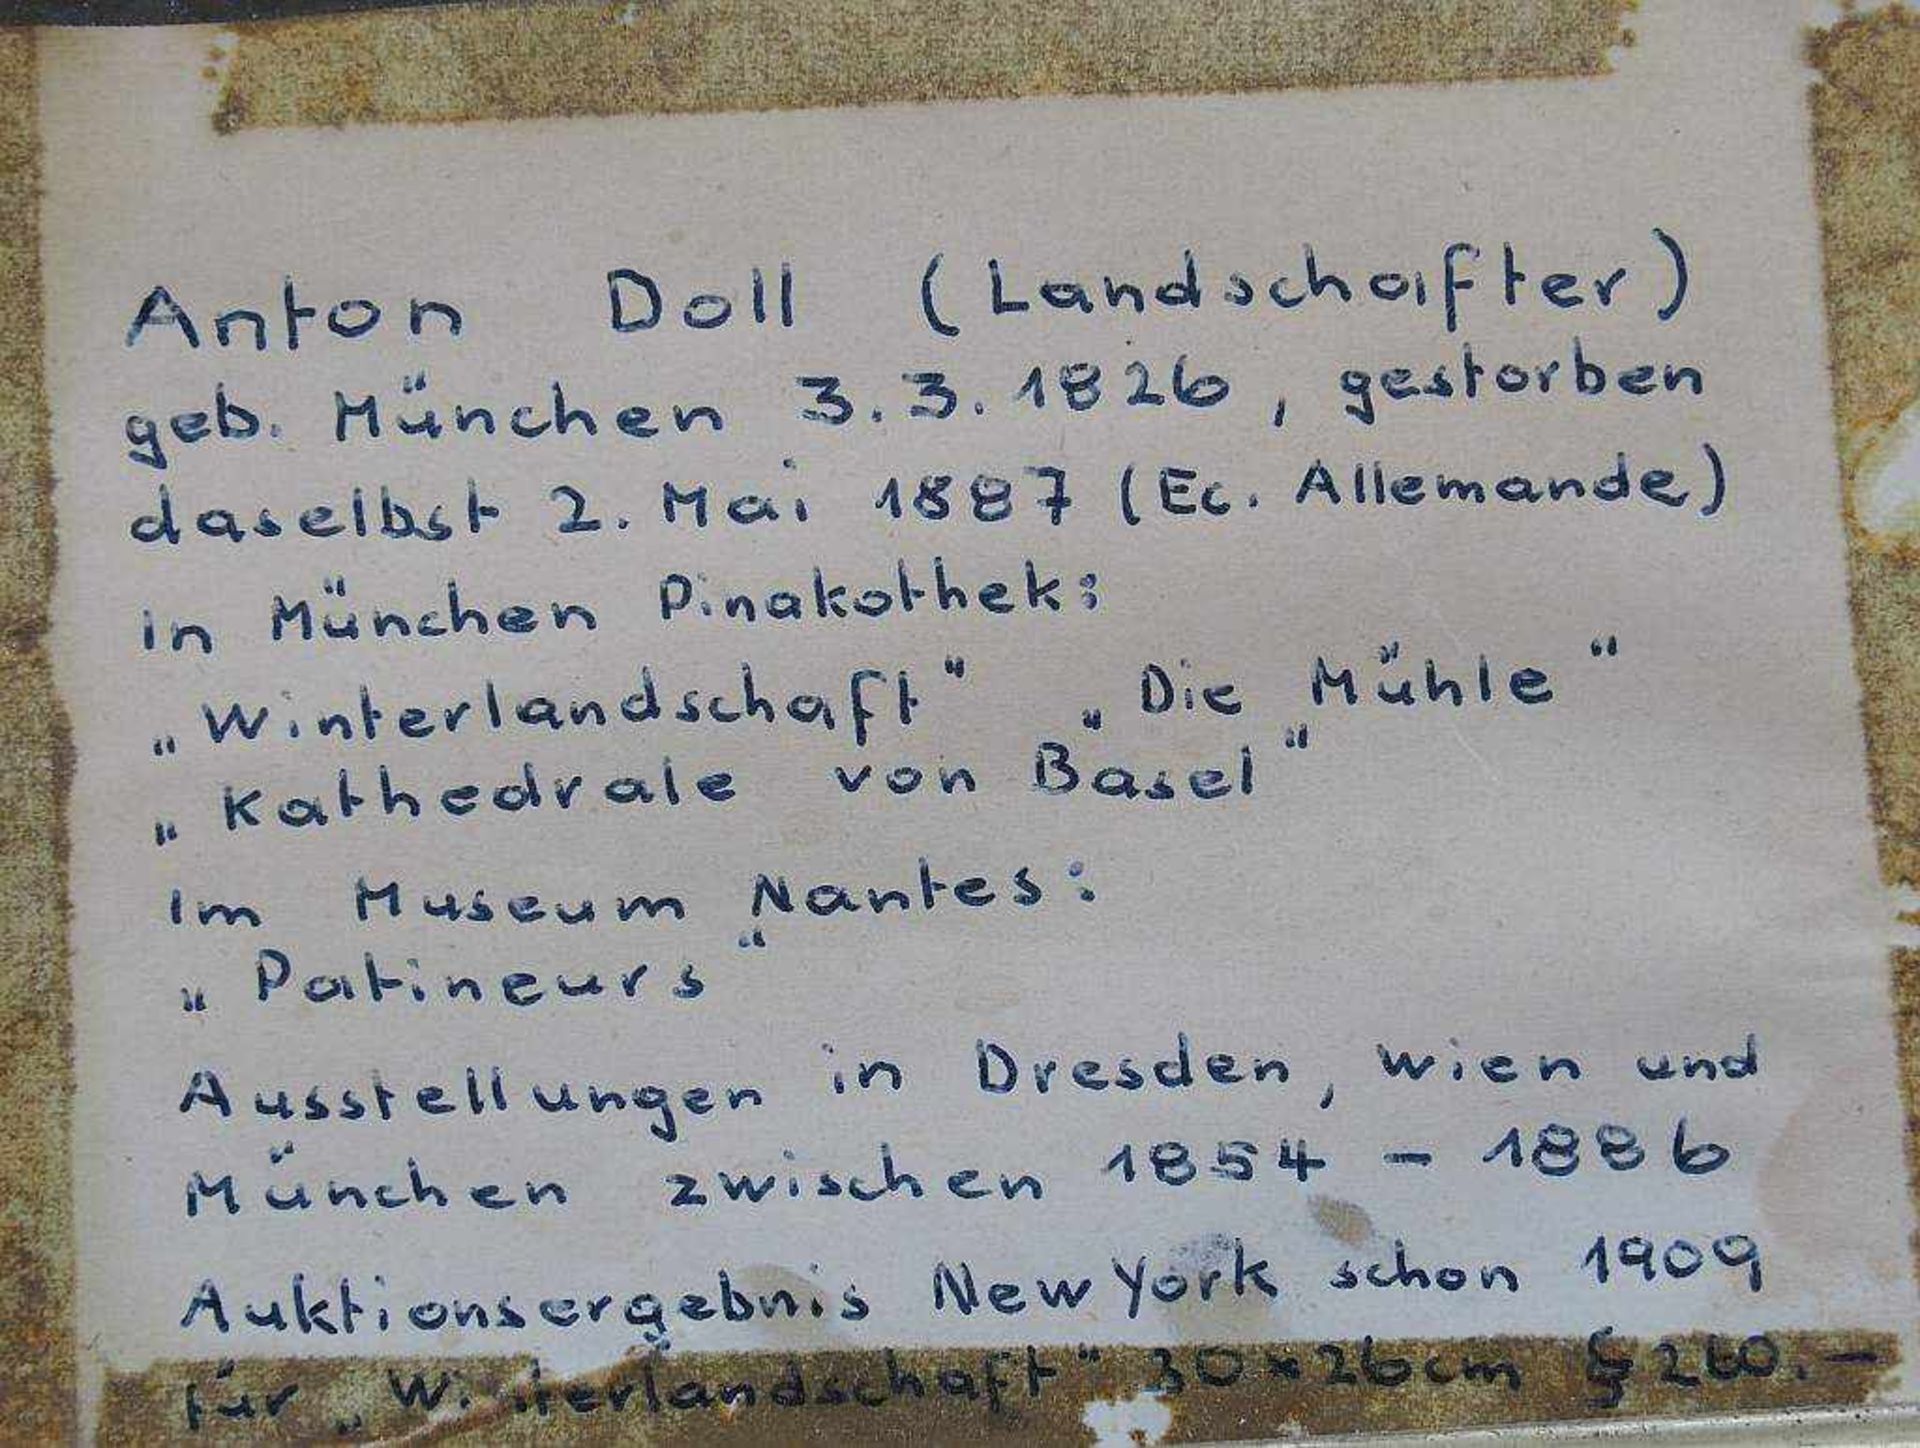 Anton Doll (Landschafter)
geb. München 3.3.1826, gestorben
daselbst 2. Mai 1887 (Ec. Allemande)
in München Pinakothek:
„Winterlandschaft“ „Die Mühle“
„Kathedrale von Basel“
Im Museum Nantes:
„Patineurs“
Ausstellungen in Dresden, Wien und
München zwischen 1854 - 1886
Auktionsergebnis New York schon 1909
für „Winterlandschaft“ 30x26cm $ 260.-